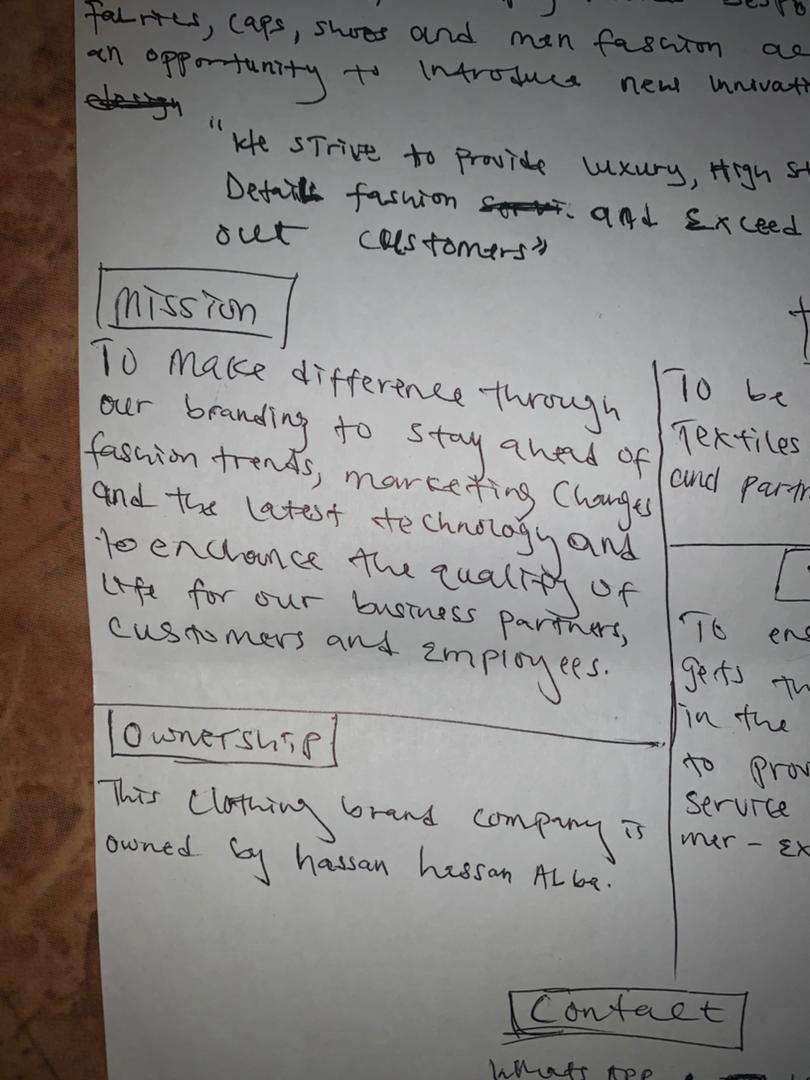 fabrics, caps, shoes and men fashion ac
an opportunity to introduce new innovati
design
"We strive to provide luxury, High st
Details fashion and Exceed
out customers"
Mission
To make difference through
our branding to stay ahead of
fashion trends, marketing Changes
and the latest technology and
to enchance the quality of
life for our business partners,
customers and Employees.
To be
Textiles
and partn
Ownership
This clothing brand company is
owned by hassan hassan ALba.
To ens
gets th
in the
to prov
service
mer - Ex
Contact
Whats APP